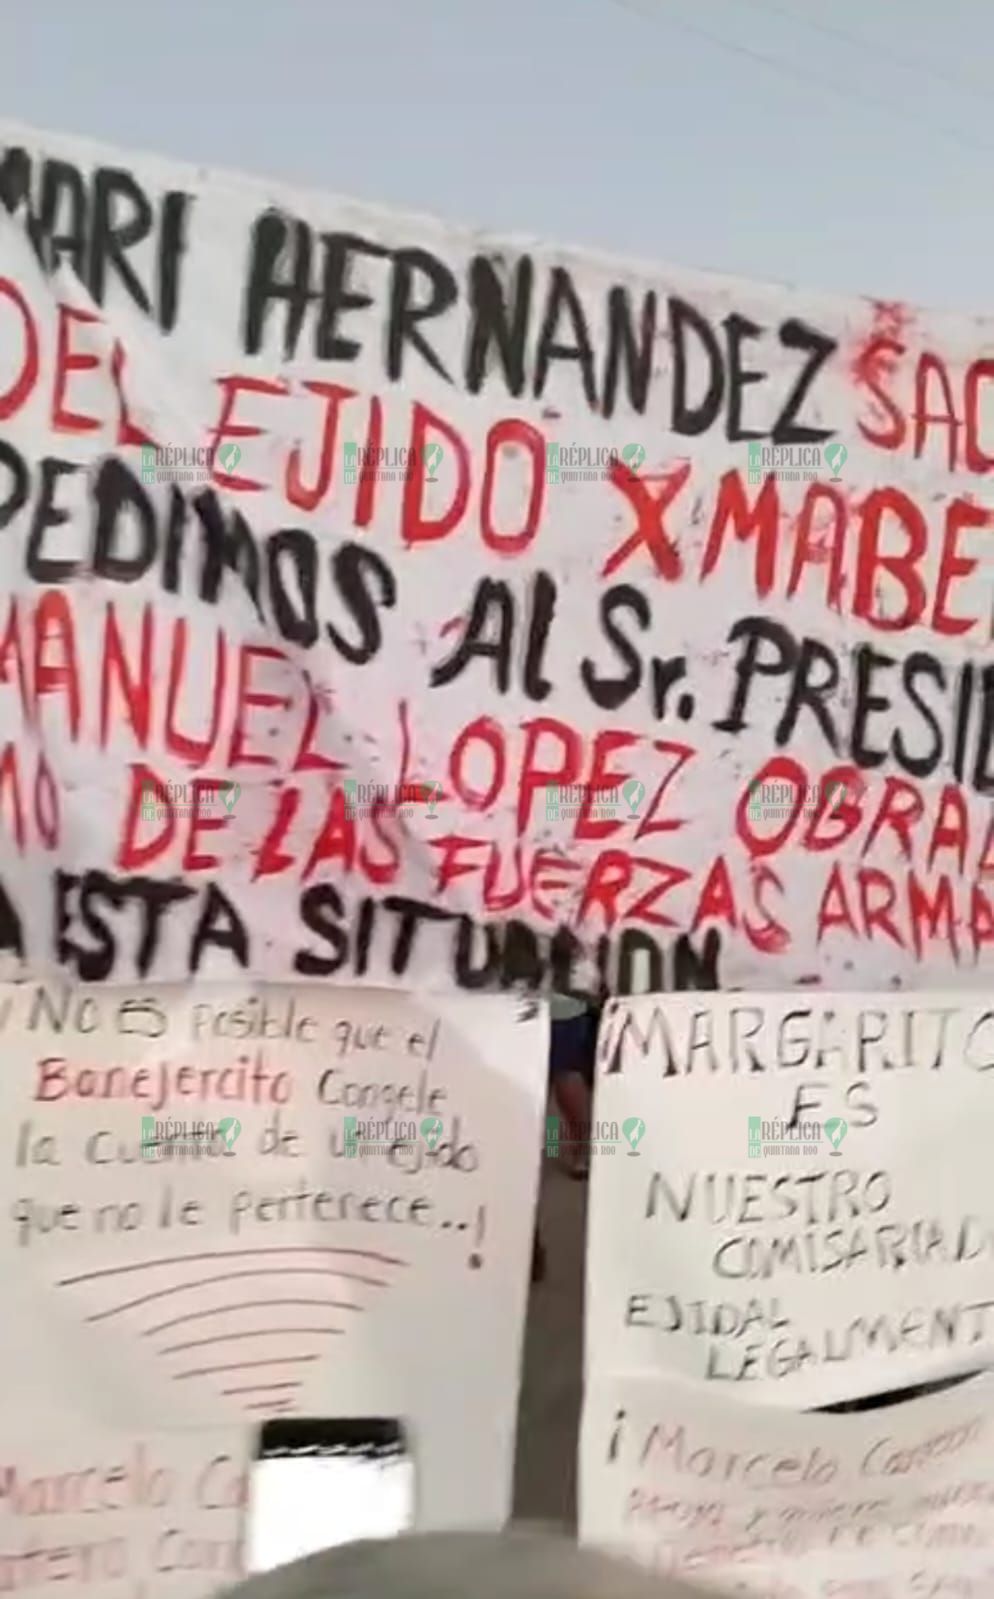 MARI HERNANDEZ SAC
DEL EJIDO XMABE
PEDIMOS Al Sr. PRESID
MANUEL LOPEZ OBRAD
MO DE LAS FUERZAS ARMA
A ESTA SITUACION
¡MARGARITO
ES
NUESTRO
COMISARIAD
EJIDAL
LEGALMENT
¡Marcelo
NO ES Posible que el
Banejercito Congele
la cuenta de un ejido
que no le pertenece..!
Marcelo Ca
LA RÉPLICA DE QUINTANA ROO